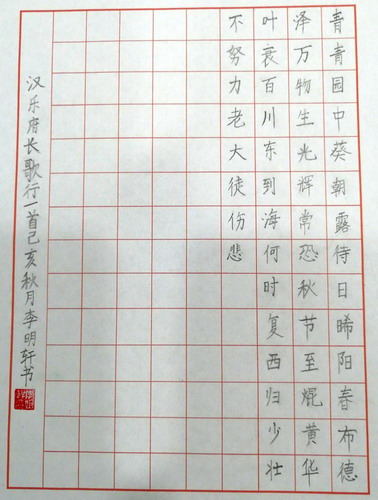 青青园中葵朝露待日晞阳春布德
泽万物生光辉常恐秋节至焜黄华
叶衰百川东到海何时复西归少壮
不努力老大徒伤悲
汉乐府长歌行一首己亥秋月李明轩书